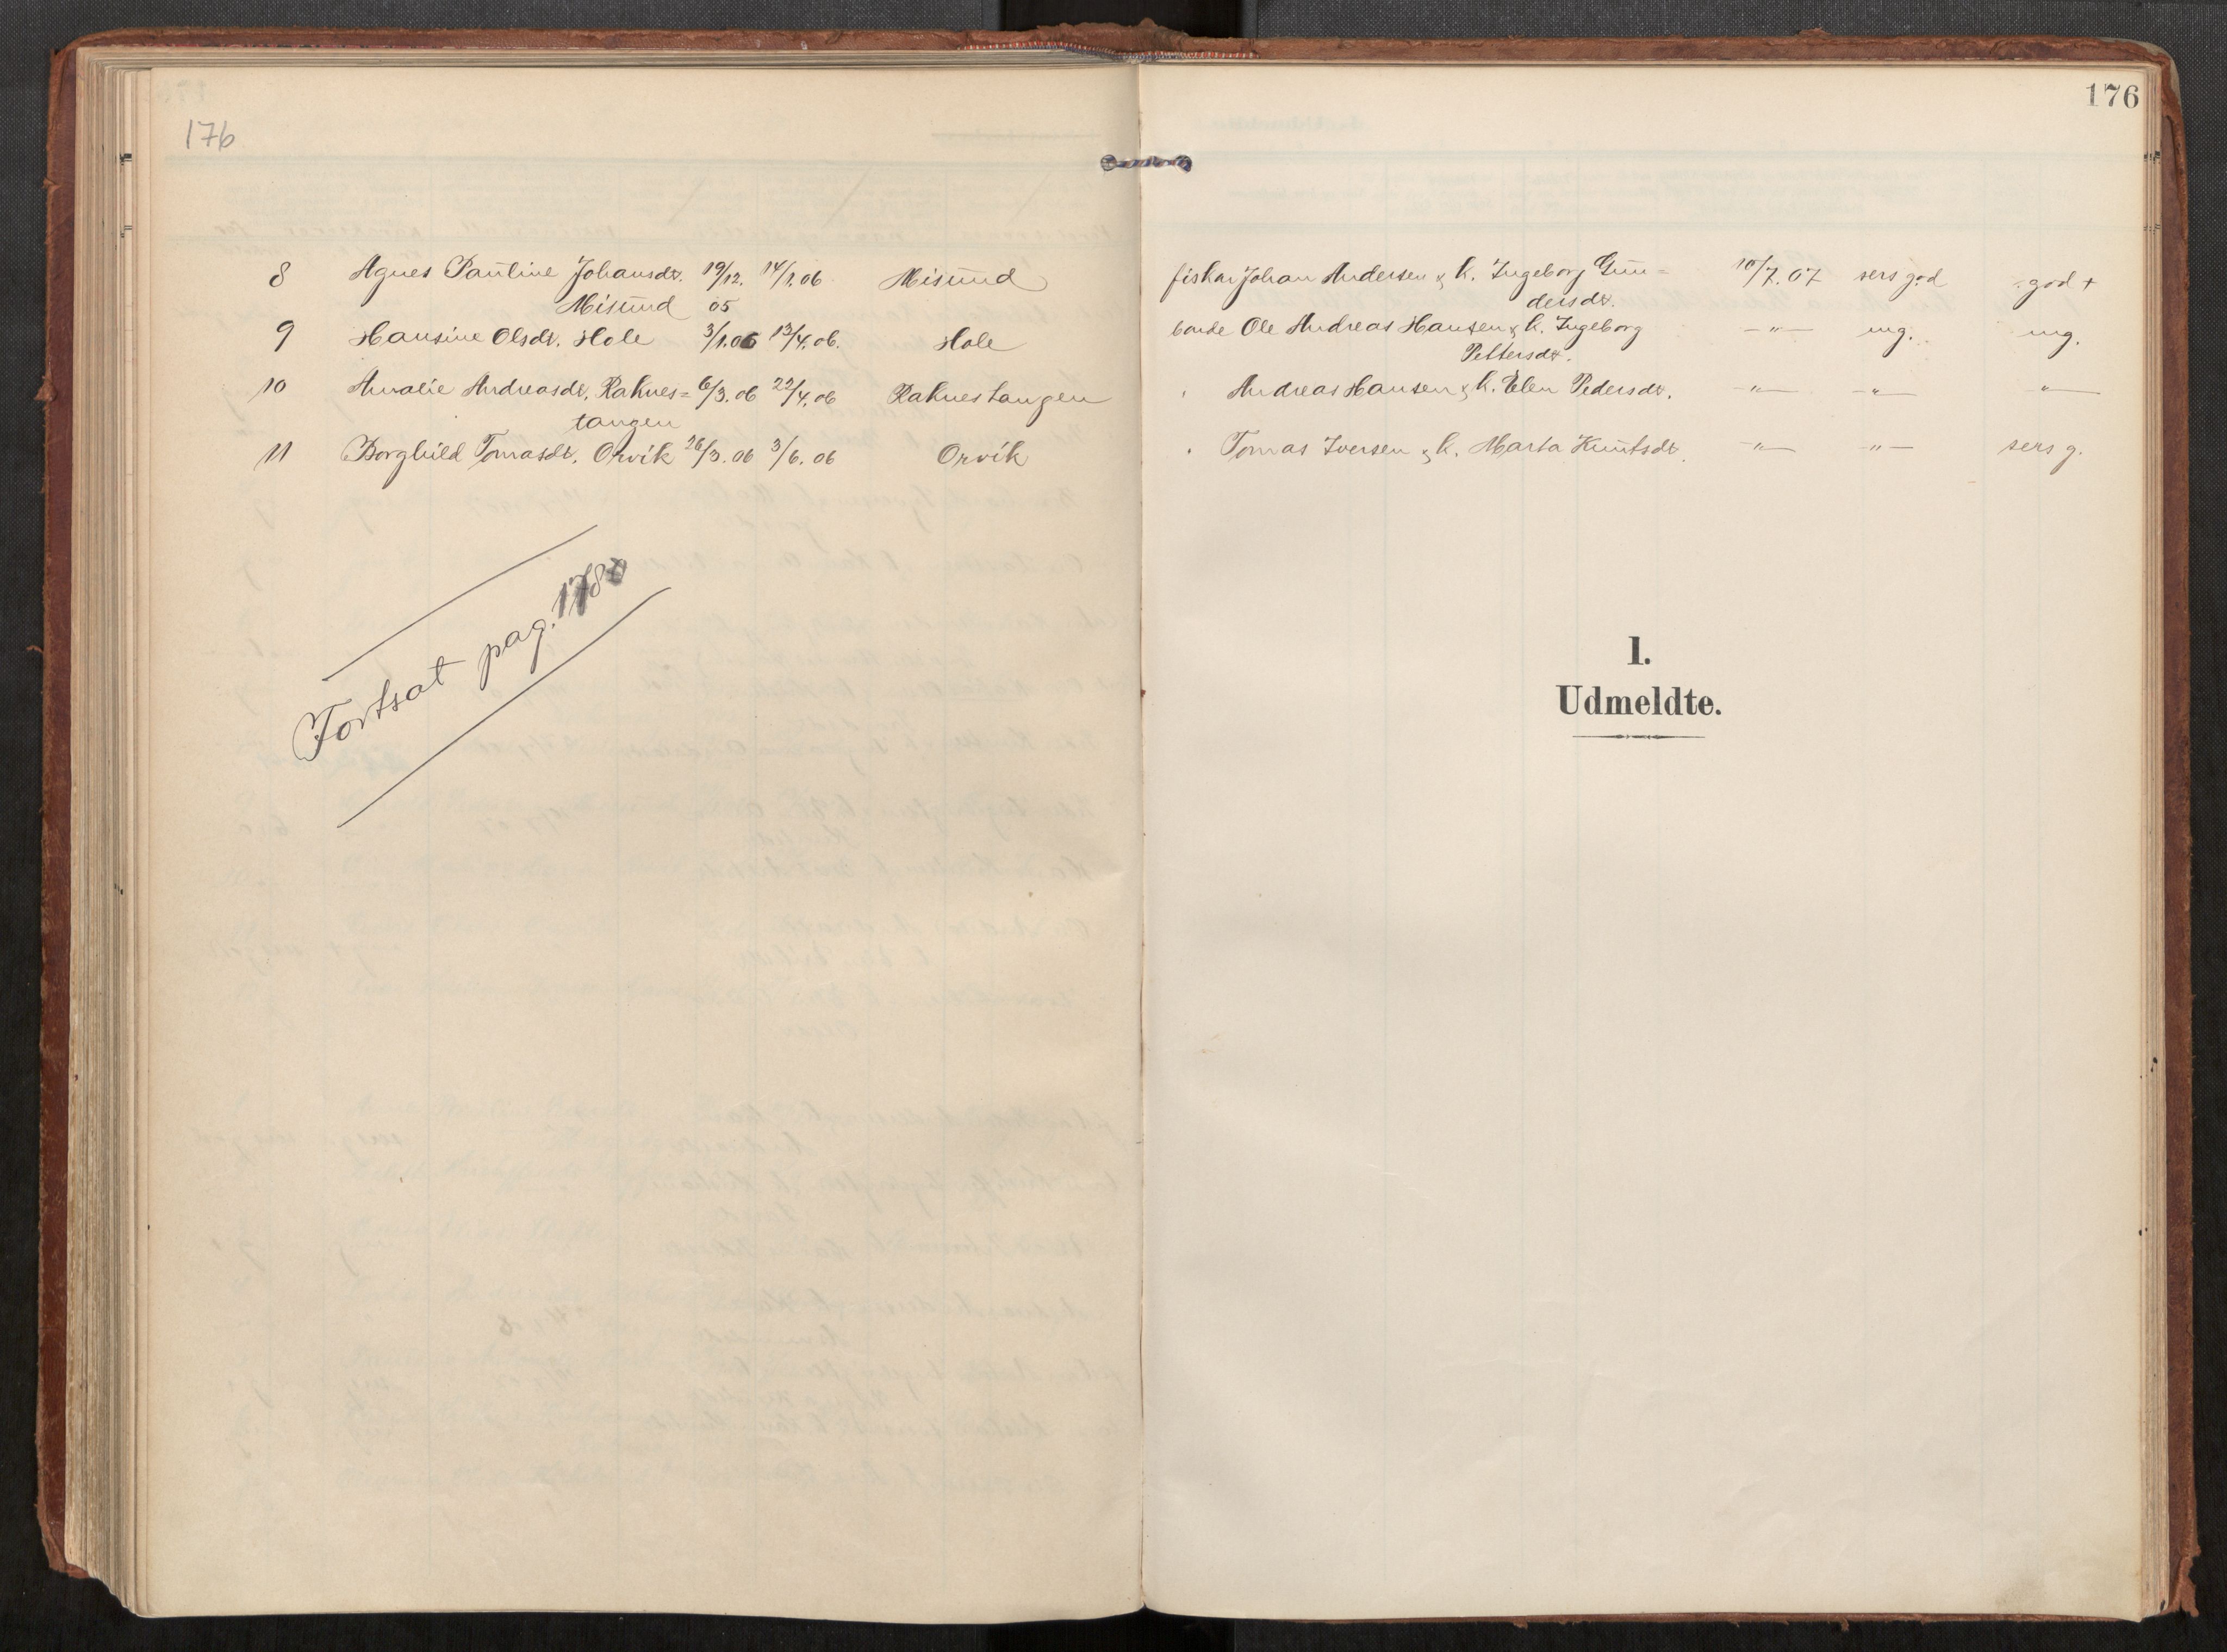 176
176
8 Agnes Pauline Johansdt. 19/12. 14/1.06 Misund fiskar Johan Andersen & k. Ingeborg Gun= 10/7.07 sers god god +
Misund 05 dersdt.
9 Hansine Olsdt. Hole 3/1.06 13/4.06. Hole bonde Ole Andreas Hansen & k. Ingeborg —"— mg. mg.
Pettersdt.
10 Amalie Andreasdt. Raknes= 6/3.06 22/4.06 Raknestangen " Andreas Hansen & k. Elen Pedersdt. —"— —"— —"—
tangen
11 Borghild Tomasdt. Orvik 26/3.06 3/6.06 Orvik " Tomas Iversen & k. Marta Knutsdt. —"— —"— sers g.
Fortsat pag.
1.
Udmeldte.